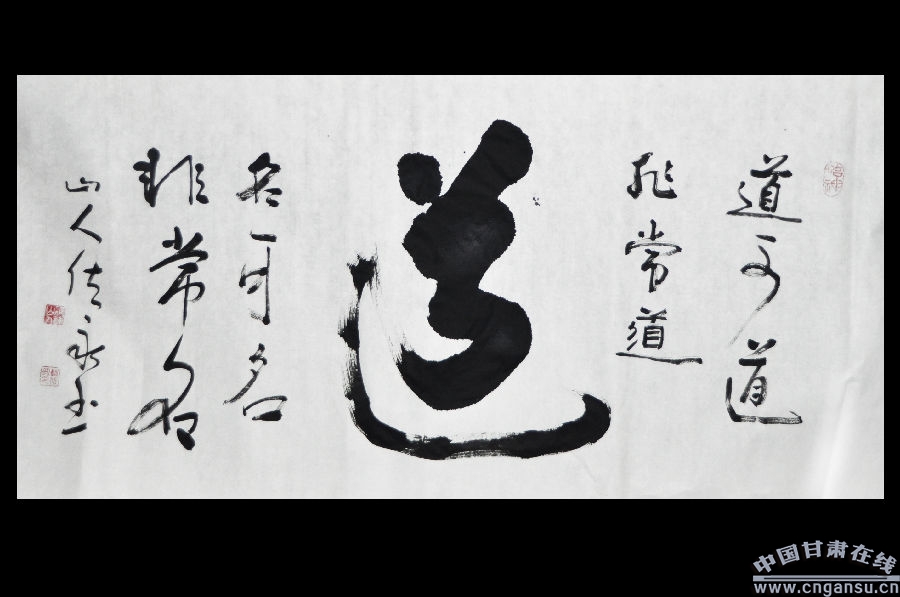 道可道
非常道
道
名可名
非常名
山人佐永书
中国甘肃在线
www.cngansu.cn